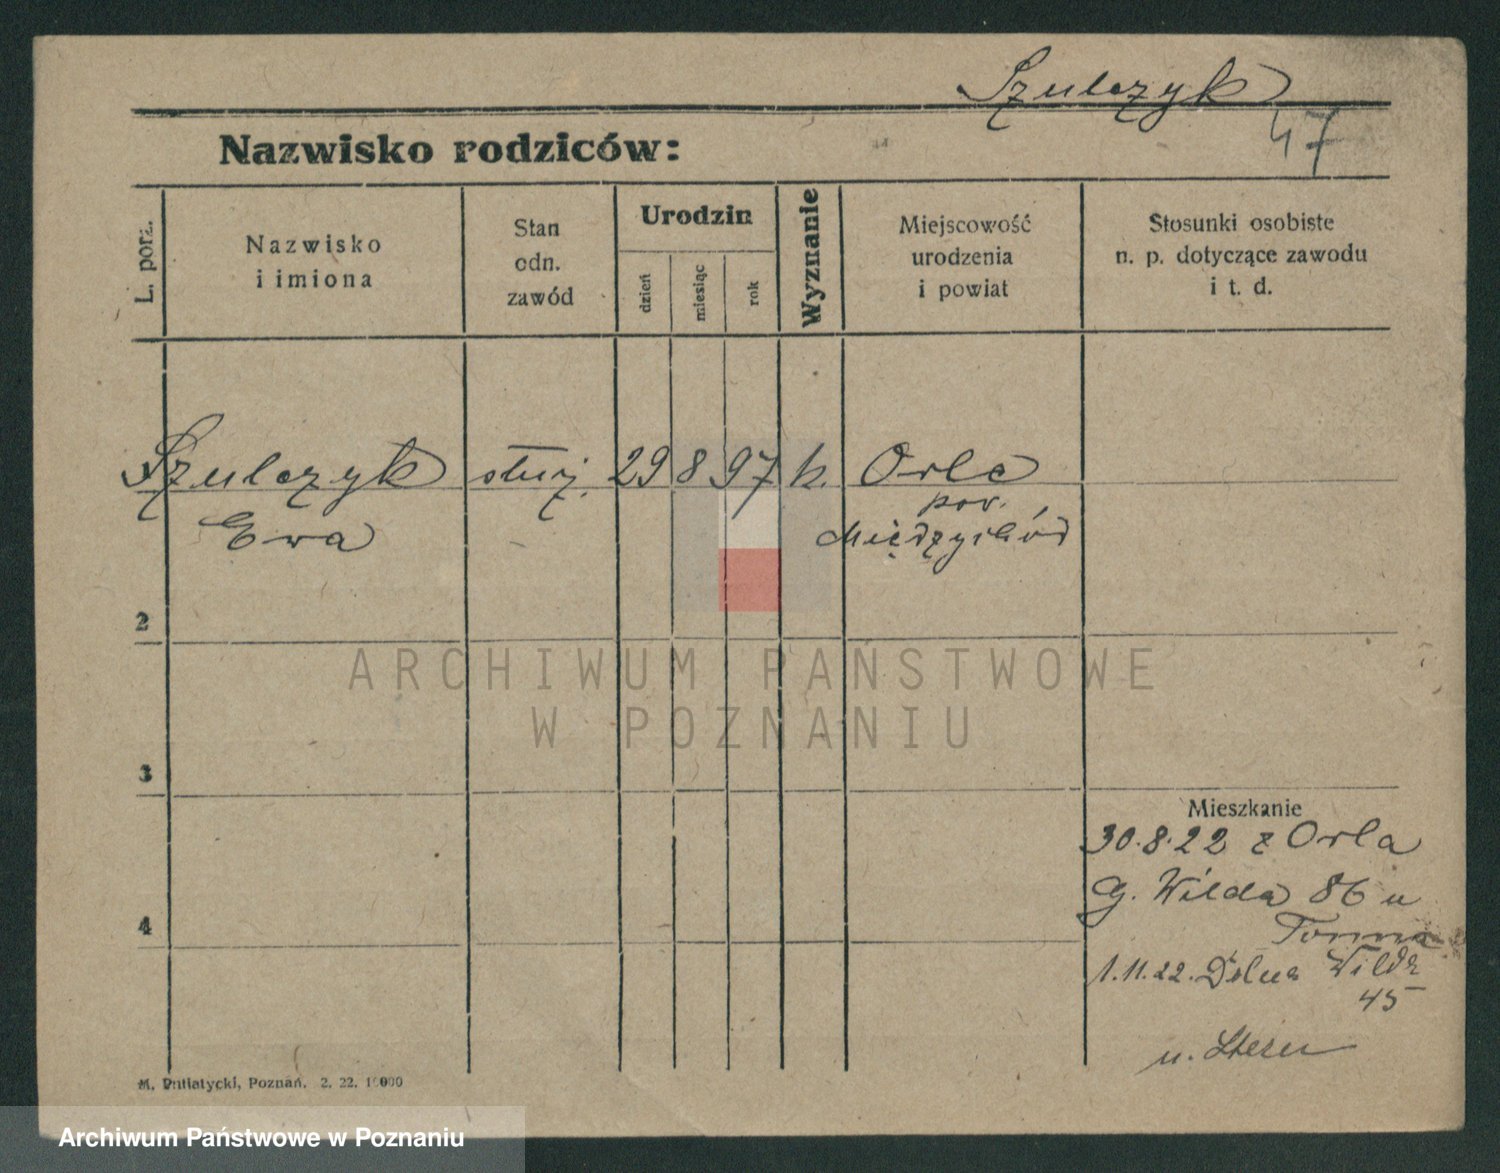 Szulczyk
47
Nazwisko rodziców:
L. porz.
Nazwisko
i imiona
Stan
odn.
zawód
Urodzin
dzień
miesiąc
rok
Wyznanie
Miejscowość
urodzenia
i powiat
Stosunki osobiste
n. p. dotyczące zawodu
i t. d.
Szulczyk służ. 29 8 97 k. Orle
pow.
Ewa Międzychód
2
3
4
Mieszkanie
30.8.22 z Orla
G. Wilda 86 u
1.11.22. Dolna Wilda
45
u.
ARCHIWUM PAŃSTWOWE
W POZNANIU
M. Putiatycki, Poznań. 2. 22. 10000
Archiwum Państwowe w Poznaniu